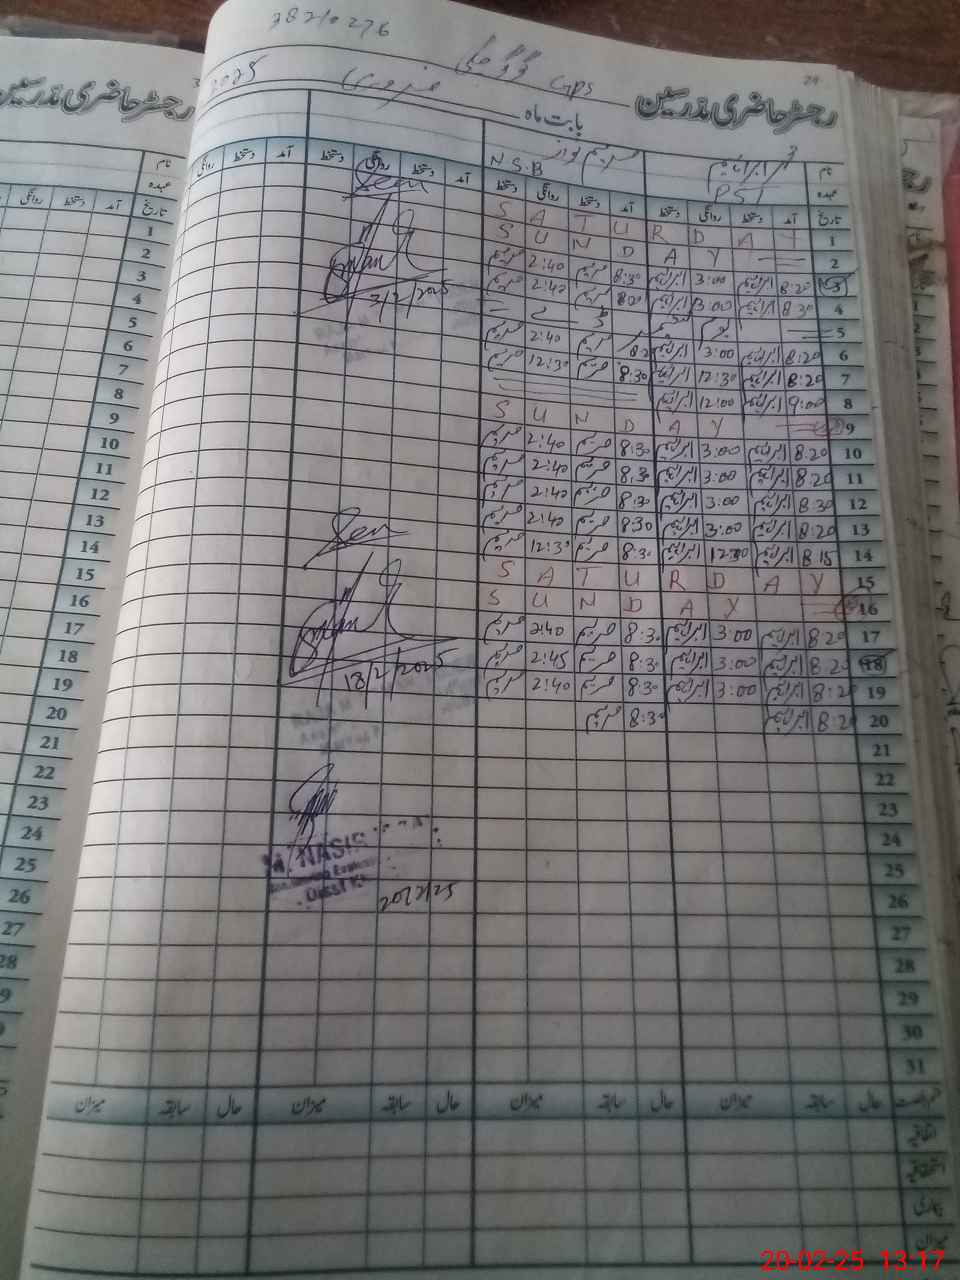 38210276
24
رجسٹر حاضری مدرسین
GPS
بابت ماہ
فروری
2025
نام
ابراہیم
مریم نواز
عہدہ
PST
N.S.B
تاریخ آمد دستخط روانگی دستخط آمد دستخط روانگی دستخط آمد دستخط روانگی دستخط آمد دستخط روانگی
1 S A T U R D A Y
2 S U N D A Y
3 8:20 ابراہیم 3:00 ابراہیم 8:30 مریم 2:40 مریم
4 8:30 ابراہیم 3:00 ابراہیم مریم 2:40 مریم
5
6 8:20 ابراہیم 3:00 ابراہیم مریم 2:40 مریم
7 8:20 ابراہیم 12:30 ابراہیم 8:30 مریم 12:30 مریم
8 9:00 ابراہیم 12:00 ابراہیم
9 S U N D A Y
10 8:20 ابراہیم 3:00 ابراہیم 8:30 مریم 2:40 مریم
11 8:20 ابراہیم 3:00 ابراہیم 8:30 مریم 2:40 مریم
12 8:30 ابراہیم 3:00 ابراہیم 8:30 مریم 2:40 مریم
13 8:20 ابراہیم 3:00 ابراہیم 8:30 مریم 2:40 مریم
14 8:15 ابراہیم 12:30 ابراہیم 8:30 مریم 12:30 مریم
15 S A T U R D A Y
16 S U N D A Y
17 8:20 ابراہیم 3:00 ابراہیم 8:30 مریم 2:40 مریم
18 8:20 ابراہیم 3:00 ابراہیم 8:30 مریم 2:45 مریم
19 8:20 ابراہیم 3:00 ابراہیم 8:30 مریم 2:40 مریم
20 8:20 ابراہیم 8:30 مریم
21
22
23
24
25
26
27
28
29
30
31
Seen
3/2/2025
Seen
18/2/2025
M. NASIR
20/2/25
قسم رخصت حال سابقہ میزان حال سابقہ میزان حال سابقہ میزان حال سابقہ میزان
اتفاقیہ
استحقاقیہ
بیماری
میزان
رجسٹر حاضری مدرسین
نام
عہدہ
تاریخ آمد دستخط روانگی
1
2
3
4
5
6
7
8
9
10
11
12
13
14
15
16
17
18
19
20
21
22
23
24
25
26
27
28
20-02-25 13:17